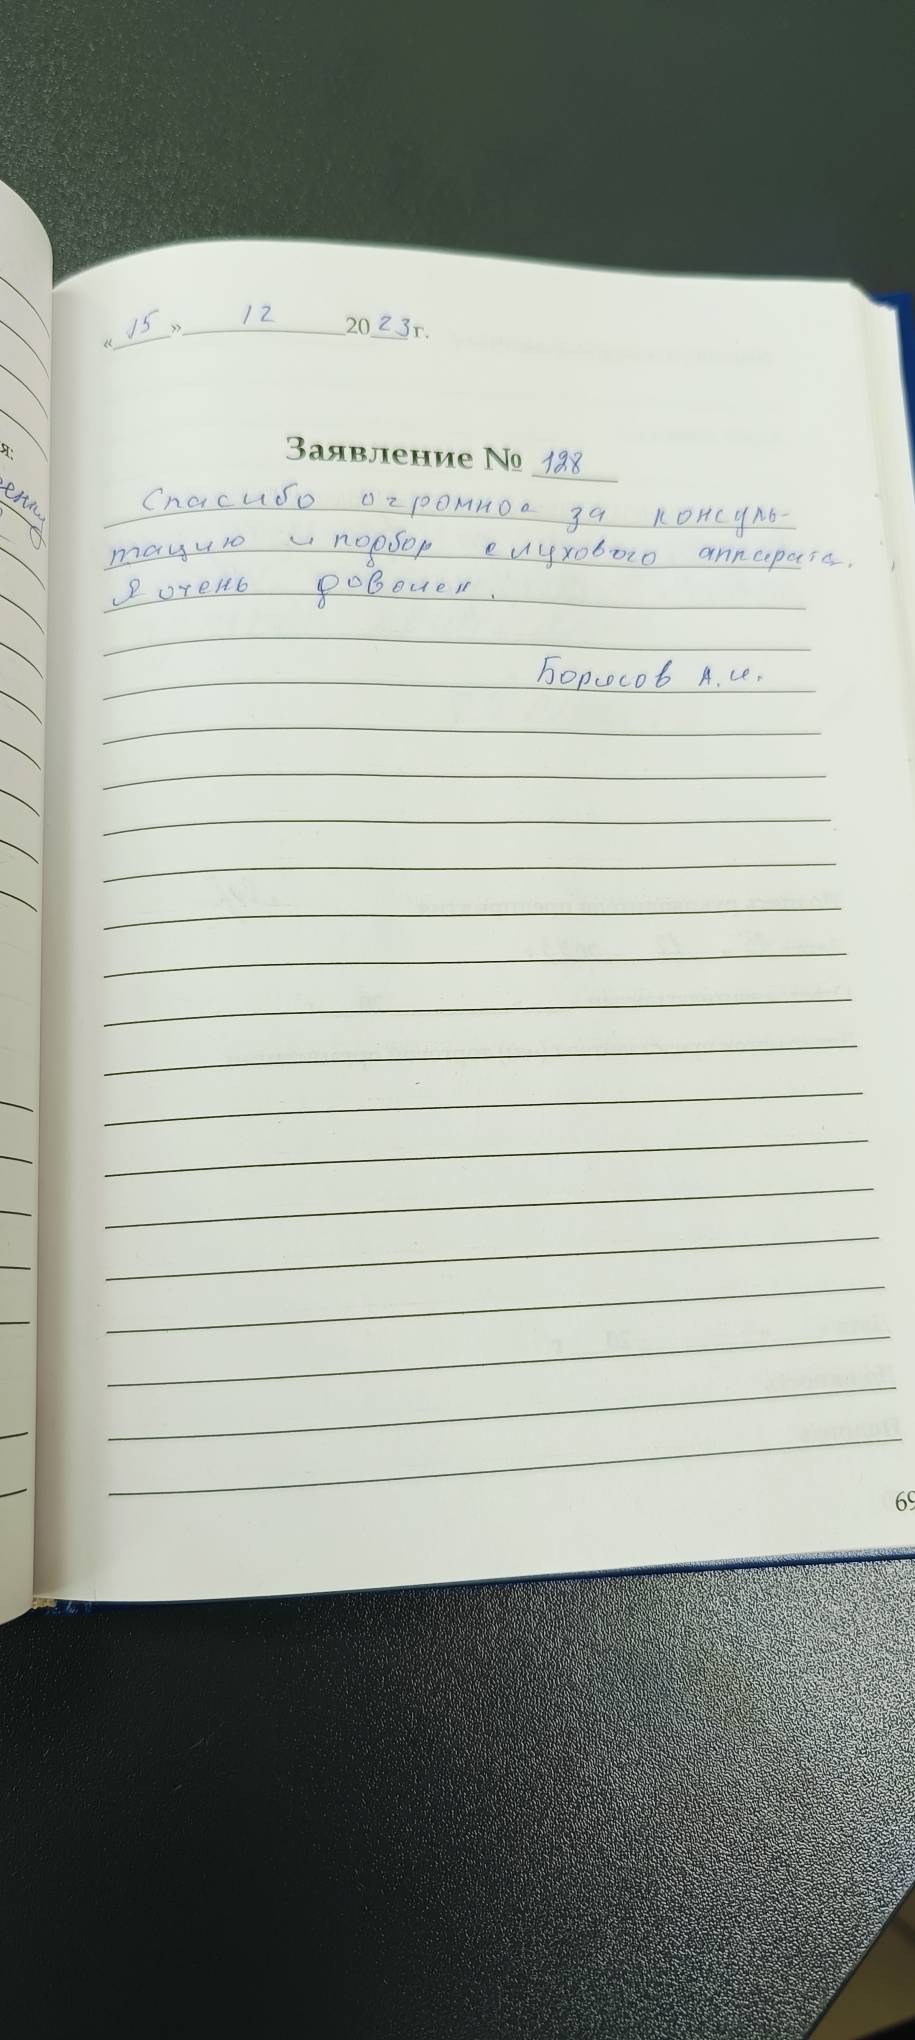 «15» 12 2023 г.
Заявление № 128
Спасибо огромное за консуль-
тацию и подбор слухового аппарата.
Я очень доволен.
Борисов А.И.
я:
69